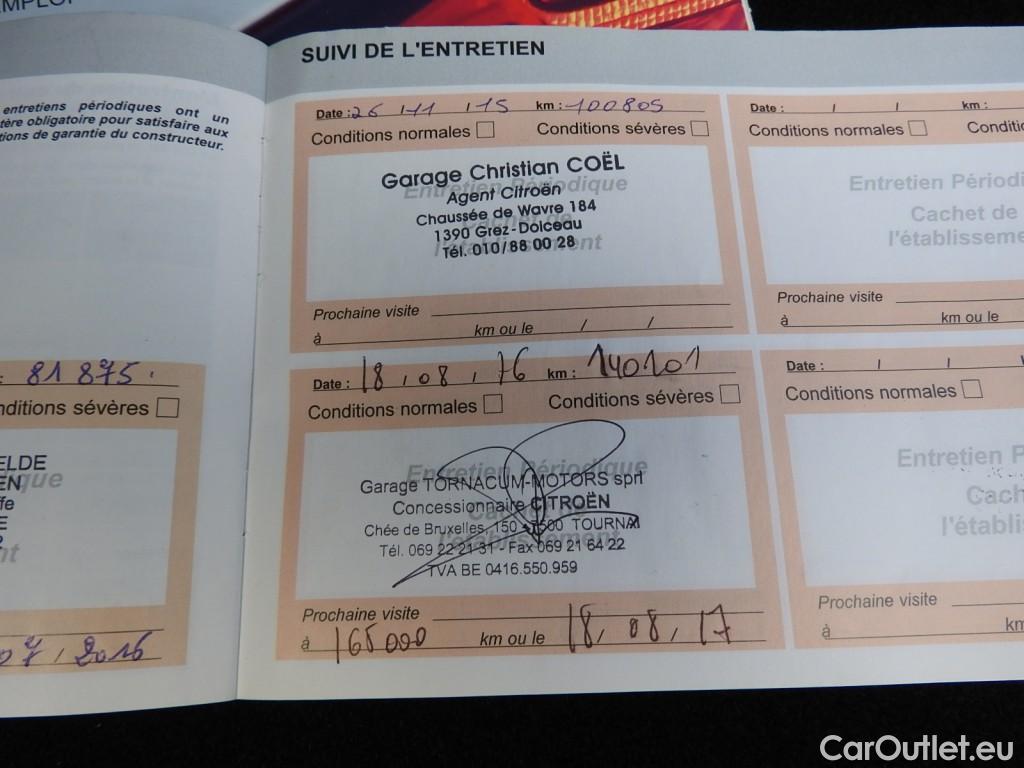 SUIVI DE L'ENTRETIEN
entretiens périodiques ont un
tère obligatoire pour satisfaire aux
tions de garantie du constructeur.
81 875.
nditions sévères
ELDE
EN
07, 2016
Date : 26 / 11 / 15 km : 100805
Conditions normales Conditions sévères
Entretien Périodique
Garage Christian COËL
Agent Citroën
Chaussée de Wavre 184
1390 Grez-Doiceau
Tél. 010/88 00 28
Prochaine visite
à km ou le / /
Date : 18, 08, 16 km : 140101
Conditions normales Conditions sévères
Entretien Périodique
Garage TORNACUM-MOTORS sprl
Concessionnaire CITROËN
Chée de Bruxelles, 150 - 7500 TOURNAI
Tél. 069 22 21 31 - Fax 069 21 64 22
TVA BE 0416.550.959
Prochaine visite
à 165000 km ou le 18, 08, 17
Date : / / km :
Conditions normales Conditi
Entretien Périodi
Cachet de
l'établisseme
Prochaine visite
à km ou le
Date : / /
Conditions normales
Entretien P
Cach
l'établi
Prochaine visite
à km
CarOutlet.eu